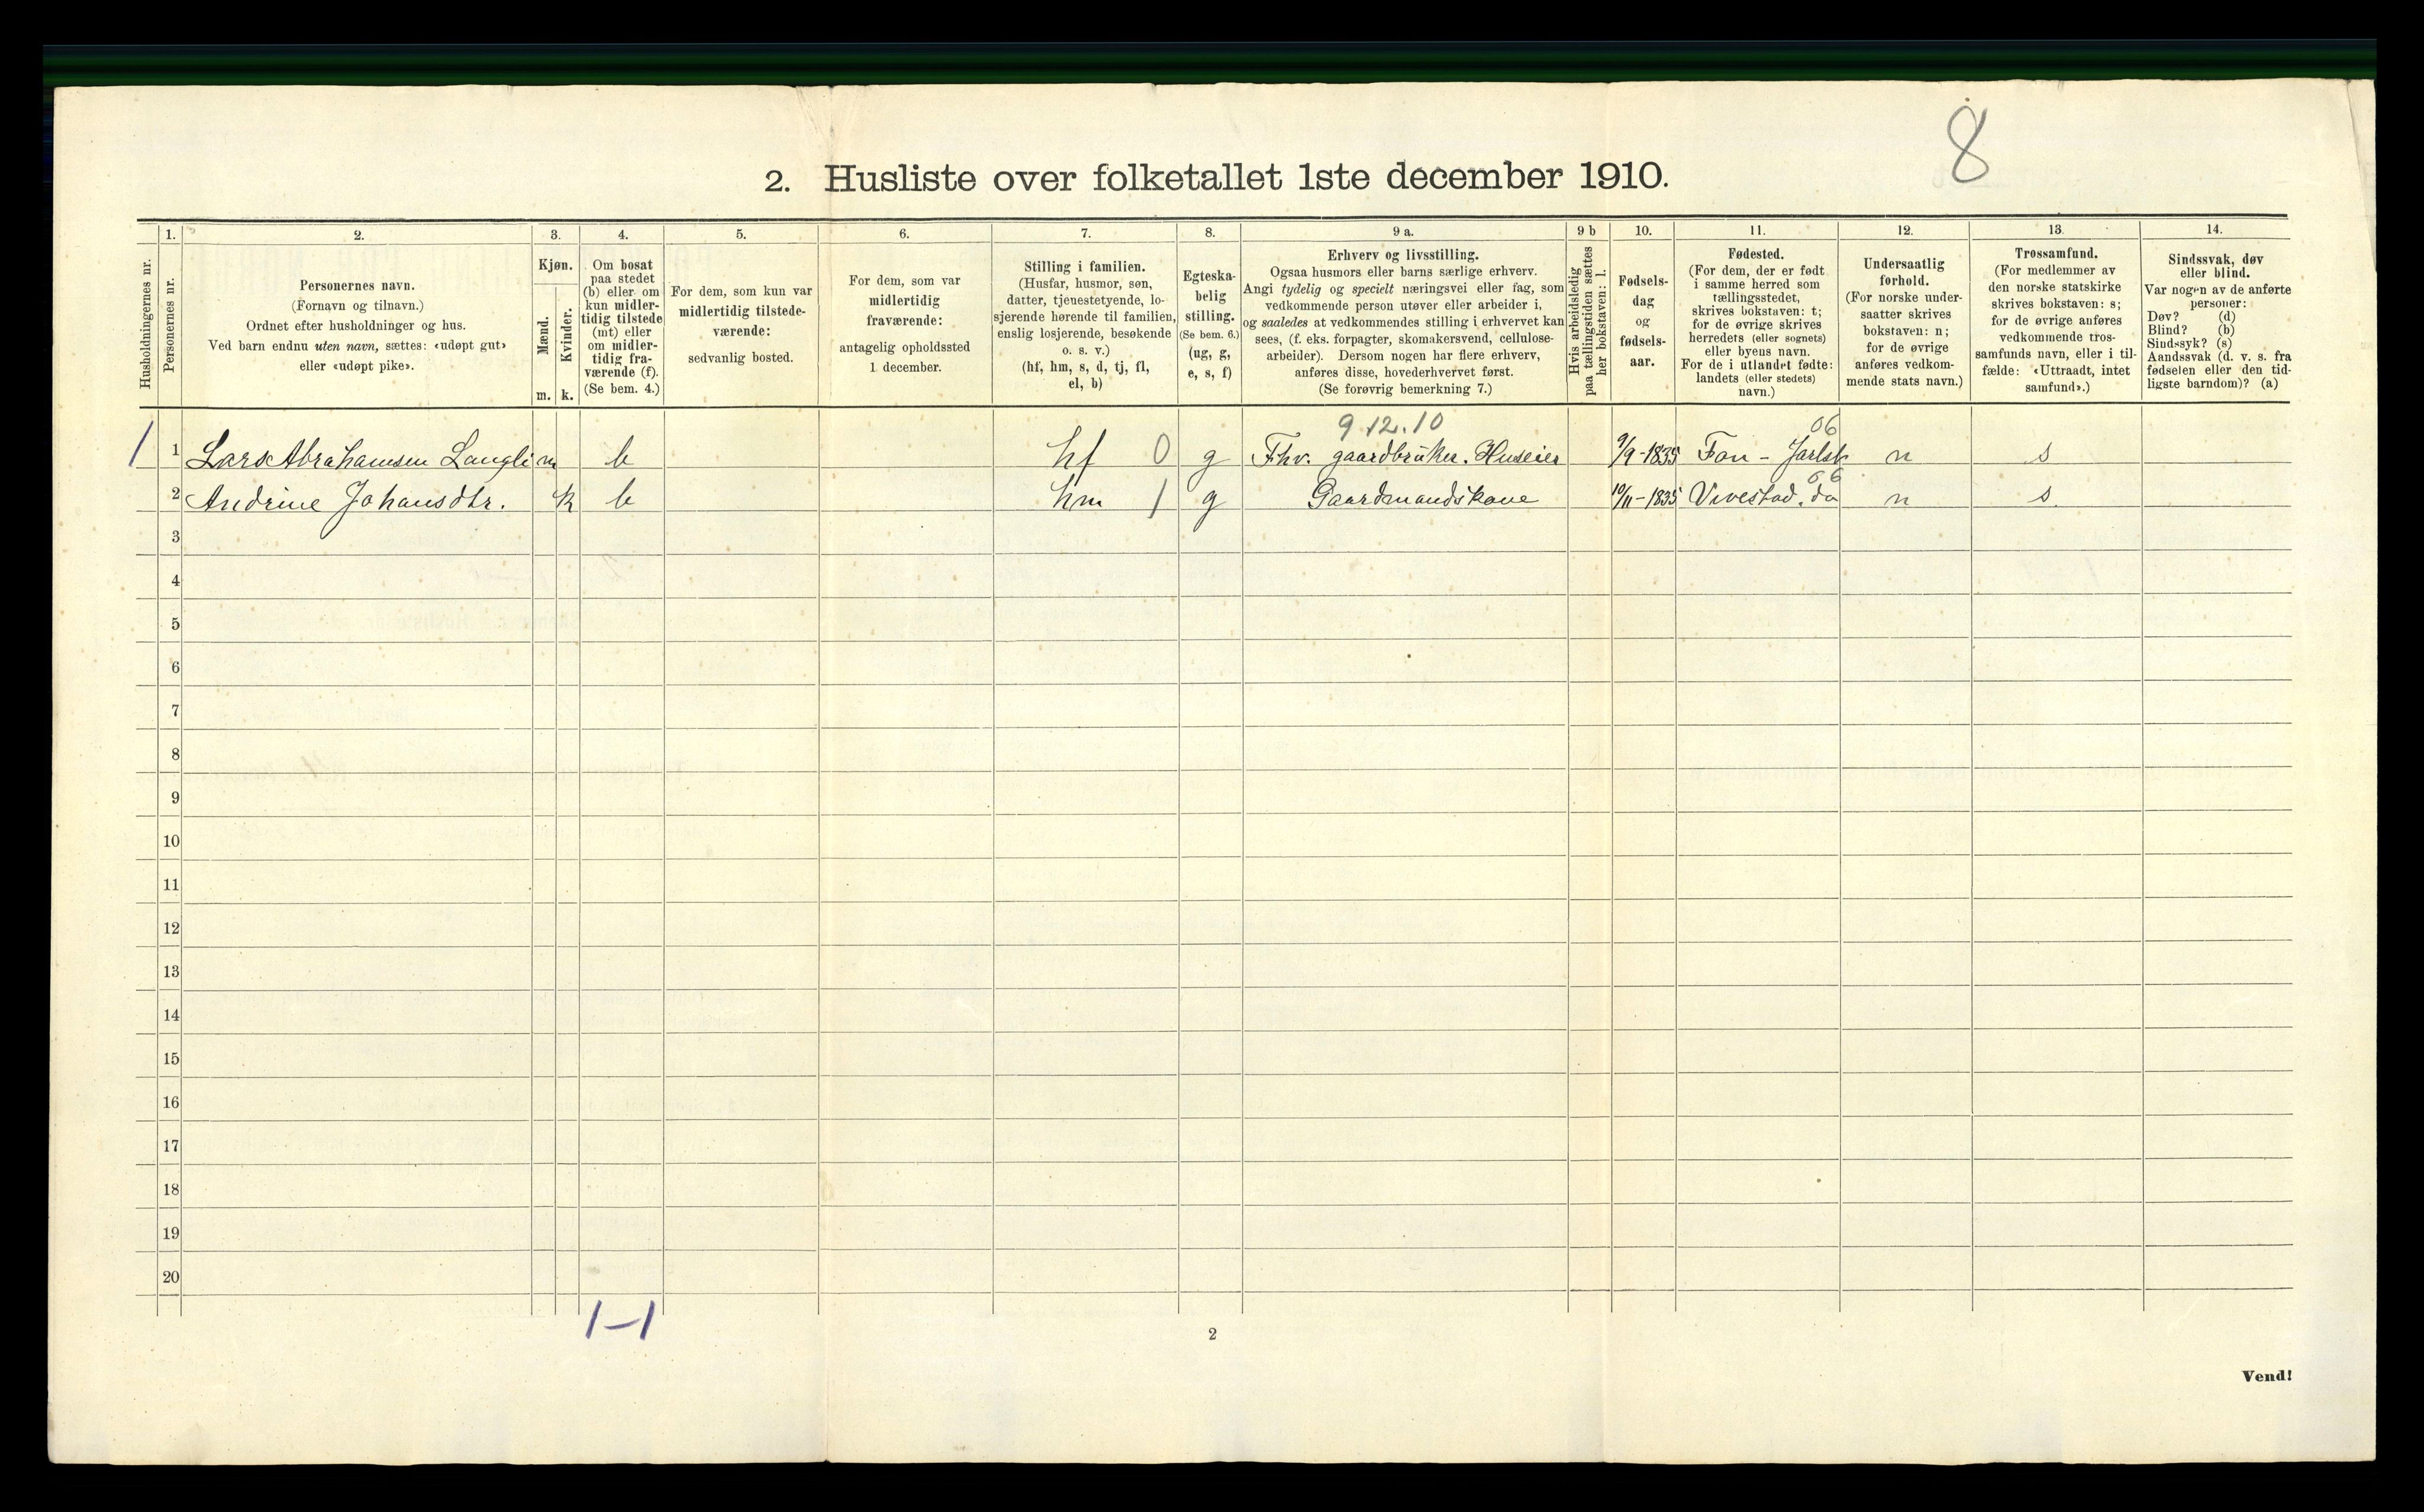 8
2. Husliste over folketallet 1ste december 1910.
Husholdningernes nr.
1.
Personernes nr.
2.
Personernes navn.
(Fornavn og tilnavn.)
Ordnet efter husholdninger og hus.
Ved barn endnu uten navn, sættes: «udøpt gut»
eller «udøpt pike».
3.
Kjøn.
Mænd.
Kvinder.
m. k.
4.
Om bosat
paa stedet
(b) eller om
kun midler-
tidig tilstede
(mt) eller
om midler-
tidig fra-
værende (f).
(Se bem. 4.)
5.
For dem, som kun var
midlertidig tilstede-
værende:
sedvanlig bosted.
6.
For dem, som var
midlertidig
fraværende:
antagelig opholdssted
1 december.
7.
Stilling i familien.
(Husfar, husmor, søn,
datter, tjenestetyende, lo-
sjerende hørende til familien,
enslig losjerende, besøkende
o. s. v.)
(hf, hm, s, d, tj, fl,
el, b)
8.
Egteska-
belig
stilling.
(Se bem. 6.)
(ug, g,
e, s, f)
9 a.
Erhverv og livsstilling.
Ogsaa husmors eller barns særlige erhverv.
Angi tydelig og specielt næringsvei eller fag, som
vedkommende person utøver eller arbeider i,
og saaledes at vedkommendes stilling i erhvervet kan
sees, (f. eks. forpagter, skomakersvend, cellulose-
arbeider). Dersom nogen har flere erhverv,
anføres disse, hovederhvervet først.
(Se forøvrig bemerkning 7.)
9 b
Hvis arbeidsledig
paa tællingstiden sættes
her bokstaven: l.
10.
Fødsels-
dag
og
fødsels-
aar.
11.
Fødested.
(For dem, der er født
i samme herred som
tællingsstedet,
skrives bokstaven: t;
for de øvrige skrives
herredets (eller sognets)
eller byens navn.
For de i utlandet fødte:
landets (eller stedets)
navn.)
12.
Undersaatlig
forhold.
(For norske under-
saatter skrives
bokstaven: n;
for de øvrige
anføres vedkom-
mende stats navn.)
13.
Trossamfund.
(For medlemmer av
den norske statskirke
skrives bokstaven: s;
for de øvrige anføres
vedkommende tros-
samfunds navn, eller i til-
fælde: «Uttraadt, intet
samfund».)
14.
Sindssvak, døv
eller blind.
Var nogen av de anførte
personer:
Døv? (d)
Blind? (b)
Sindssyk? (s)
Aandssvak (d. v. s. fra
fødselen eller den tid-
ligste barndom)? (a)
9 12.10 06
1 1 Lars Abrahamsen Langli m b hf 0 g Fhv. gaardbruker. Huseier 9/9-1835 Fon - Jarlsb n s
06
2 Andrine Johansdtr. k b hm 1 g Gaardmandskone 10/11-1835 Vivestad. do n s.
3
4
5
6
7
8
9
10
11
12
13
14
15
16
17
18
19
20
1-1
2
Vend!